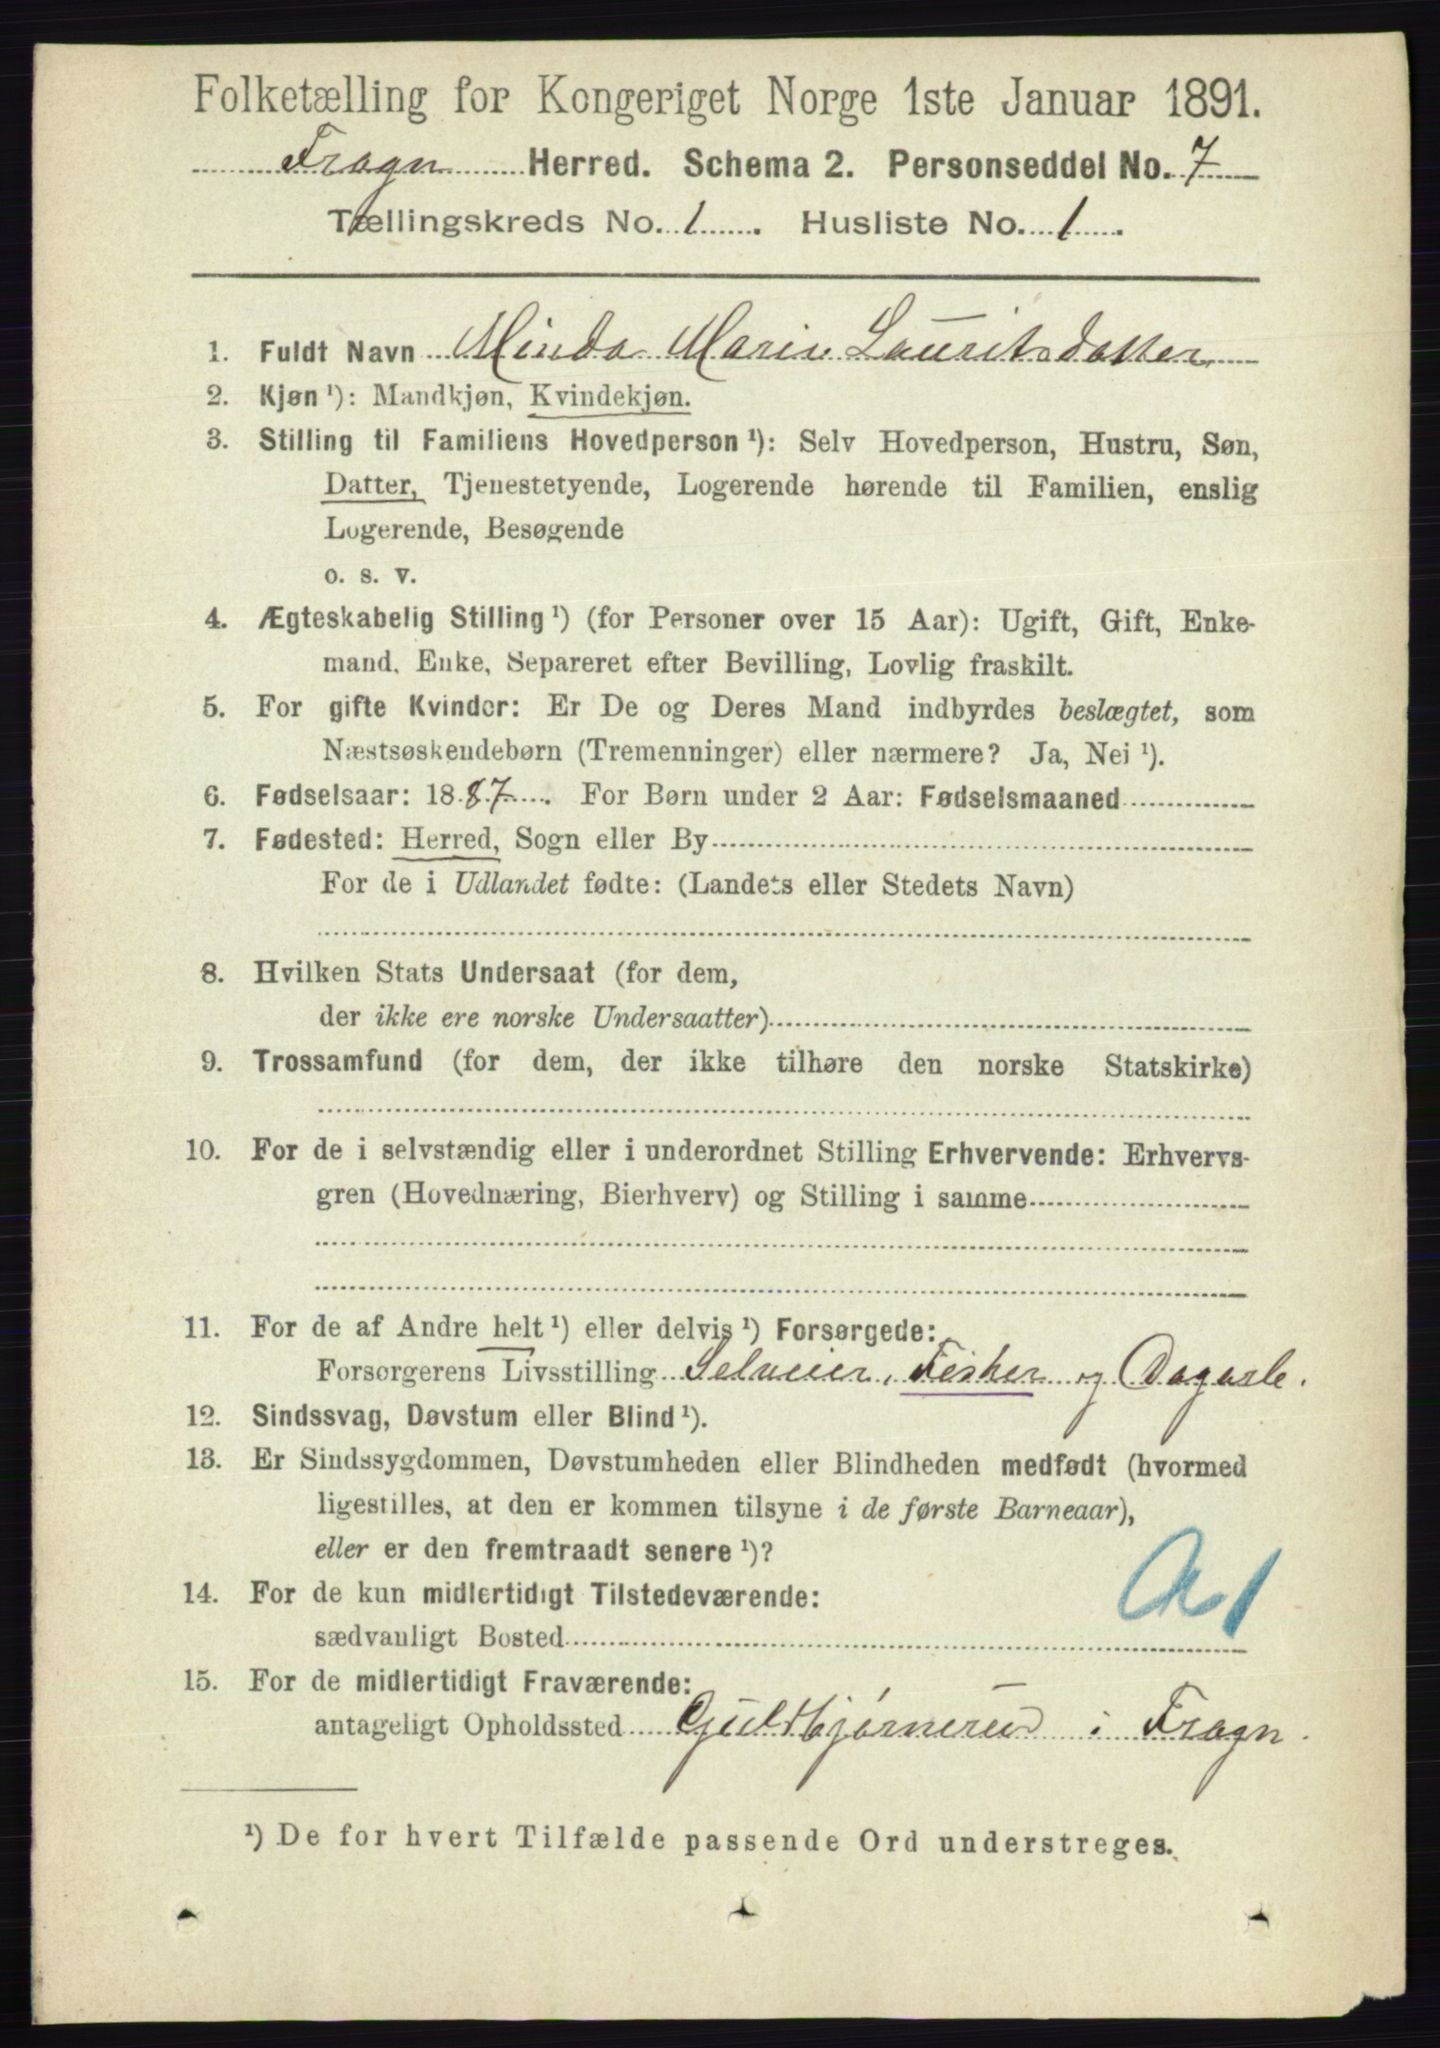 Folketælling for Kongeriget Norge 1ste Januar 1891.
Frogn Herred. Schema 2. Personseddel No. 7
Tællingskreds No. 1. Husliste No. 1.
1. Fuldt Navn Minda Marie Lauritsdatter
2. Kjøn ¹): Mandkjøn, Kvindekjøn.
3. Stilling til Familiens Hovedperson ¹): Selv Hovedperson, Hustru, Søn,
Datter, Tjenestetyende, Logerende hørende til Familien, enslig
Logerende, Besøgende
o. s. v.
4. Ægteskabelig Stilling ¹) (for Personer over 15 Aar): Ugift, Gift, Enke-
mand, Enke, Separeret efter Bevilling, Lovlig fraskilt.
5. For gifte Kvinder: Er De og Deres Mand indbyrdes beslægtet, som
Næstsøskendebørn (Tremenninger) eller nærmere? Ja, Nei ¹).
6. Fødselsaar: 1887. For Børn under 2 Aar: Fødselsmaaned
7. Fødested: Herred, Sogn eller By
For de i Udlandet fødte: (Landets eller Stedets Navn)
8. Hvilken Stats Undersaat (for dem,
der ikke ere norske Undersaatter)
9. Trossamfund (for dem, der ikke tilhøre den norske Statskirke)
10. For de i selvstændig eller i underordnet Stilling Erhvervende: Erhvervs-
gren (Hovednæring, Bierhverv) og Stilling i samme
11. For de af Andre helt ¹) eller delvis ¹) Forsørgede:
Forsørgerens Livsstilling Selveier, Fisker og Dagarb.
12. Sindssvag, Døvstum eller Blind ¹).
13. Er Sindssygdommen, Døvstumheden eller Blindheden medfødt (hvormed
ligestilles, at den er kommen tilsyne i de første Barneaar),
eller er den fremtraadt senere ¹)?
14. For de kun midlertidigt Tilstedeværende:
sædvanligt Bosted
15. For de midlertidigt Fraværende:
antageligt Opholdssted Guldbjørnerud i Frogn.
¹) De for hvert Tilfælde passende Ord understreges.